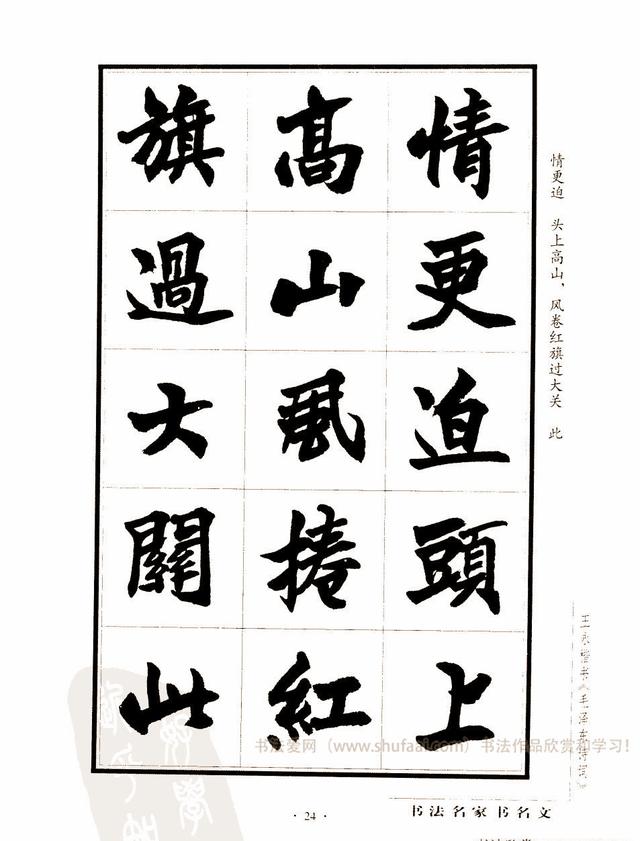 情更迫頭上
高山風捲紅
旗過大關此
情更迫 头上高山、风卷红旗过大关 此
书法爱网（www.shufaai.com）书法作品欣赏和学习！
· 24 ·
书法名家书名文